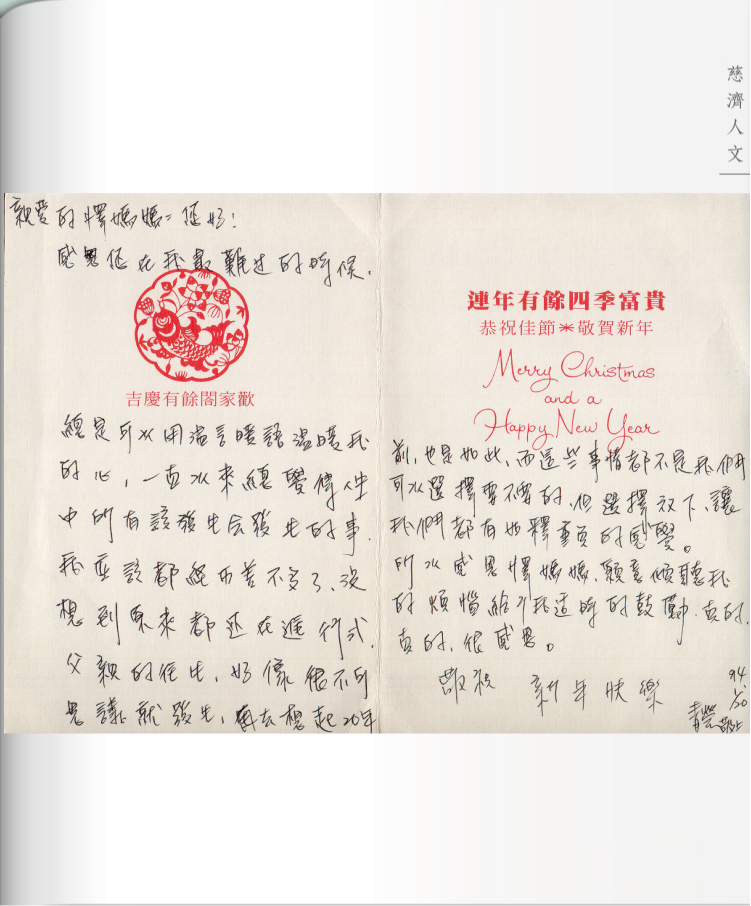 慈濟人文
親愛的懌媽媽：您好！
感恩您在我最難過的時候.
吉慶有餘閤家歡
總是可以用溫言暖語溫暖我
的心，一直以來總覺得人生
中所有該發生會發生的事.
我應該都經歷差不多了、沒
想到原來都還在進行式.
父親的往生，好像很不可
思議就發生，再去想起20年
連年有餘四季富貴
恭祝佳節＊敬賀新年
Merry Christmas
and a
Happy New Year
前，也是如此，而這些事情都不是我們
可以選擇要不要的.但選擇放下、讓
我們都有如釋重負的感覺。
所以感恩懌媽媽、願意傾聽我
的煩惱給予我適時的鼓勵.真的.
真的.很感恩。
敬祝 新年快樂
94
敬上